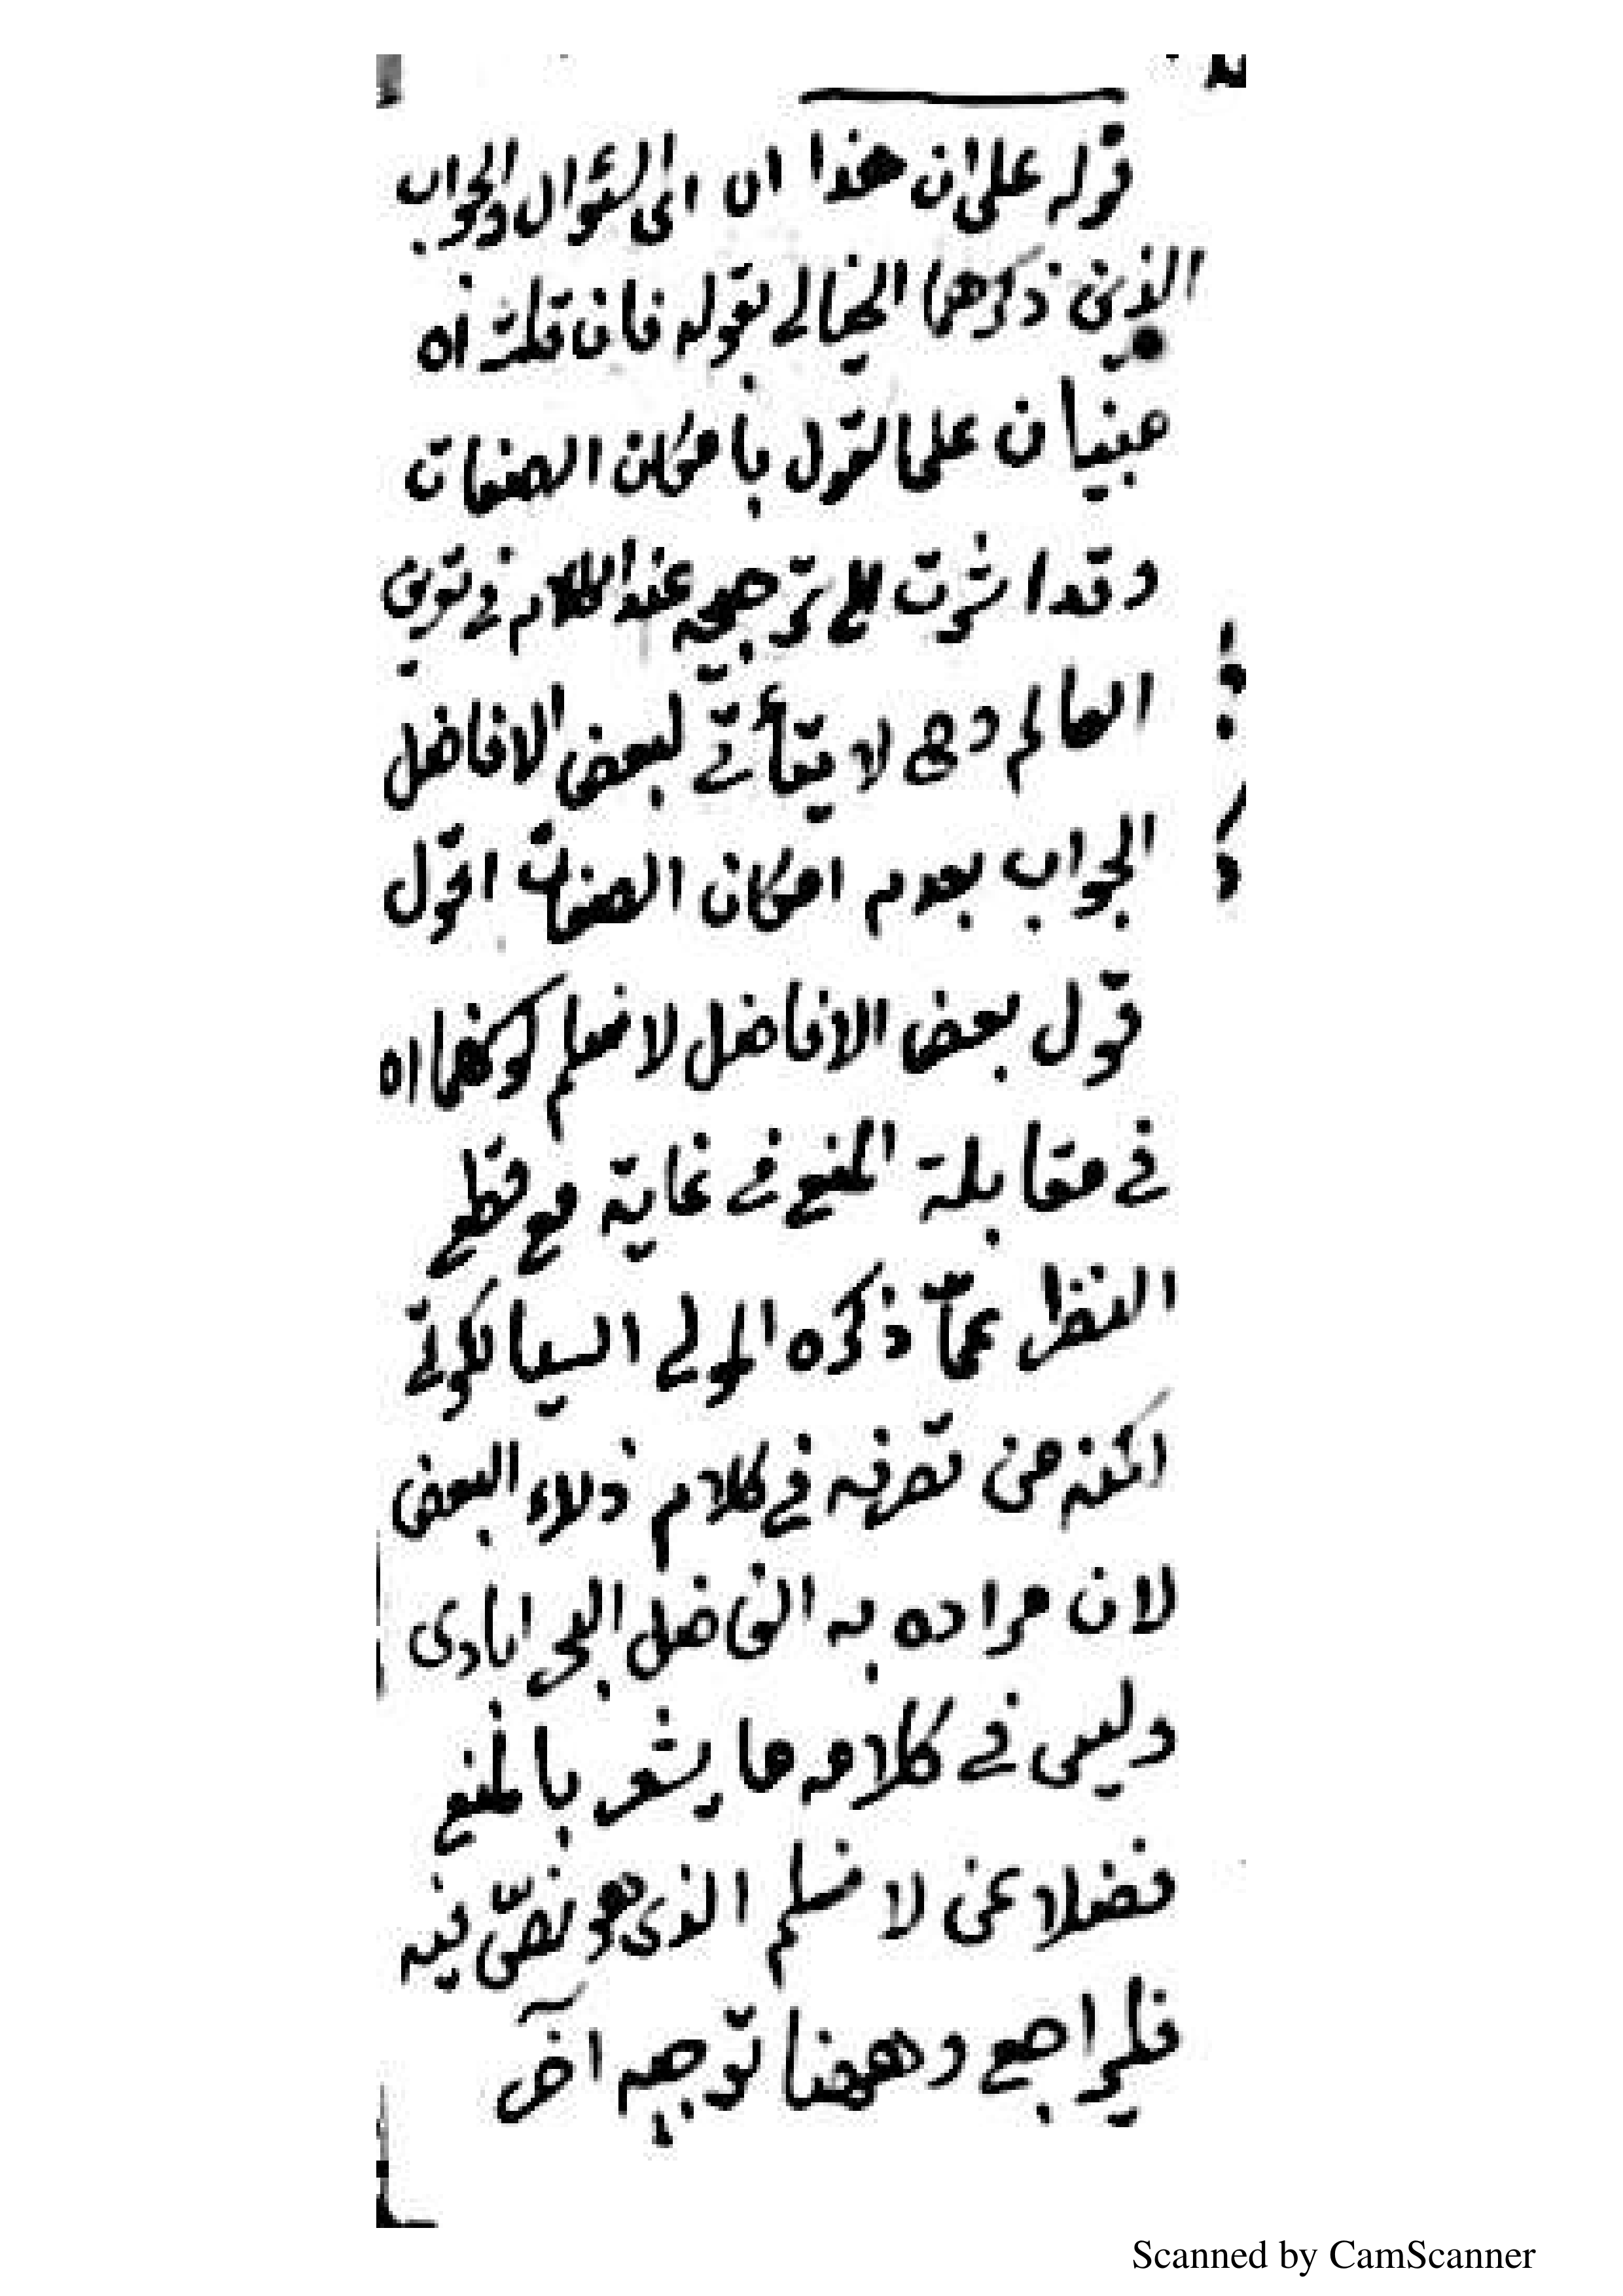 قوله على ان هذا اه اى السؤال والجواب
الذين ذكرهما الخيالى بقوله فان قلت اه
مبنيان على القول بامكان الصفات
وقد اشرت الى ترجيحه عند الكلام فى تعريف
العالم وح لا يتأتى لبعض الافاضل
الجواب بعدم امكان الصفات اقول
قول بعض الافاضل لا نسلم كونهما اه
فى مقابلة المنع فى غاية مع قطع
النظر عمّا ذكره المولى السيالكوتى
لكنه من تصرفه فى كلام ذلاء البعض
لان مراده به الفاضل البحرابادى
وليس فى كلامه ما يشعر بالمنع
فضلا عن لا نسلم الذى هو نصّ فيه
فليراجع وههنا توجيه آخر
Scanned by CamScanner